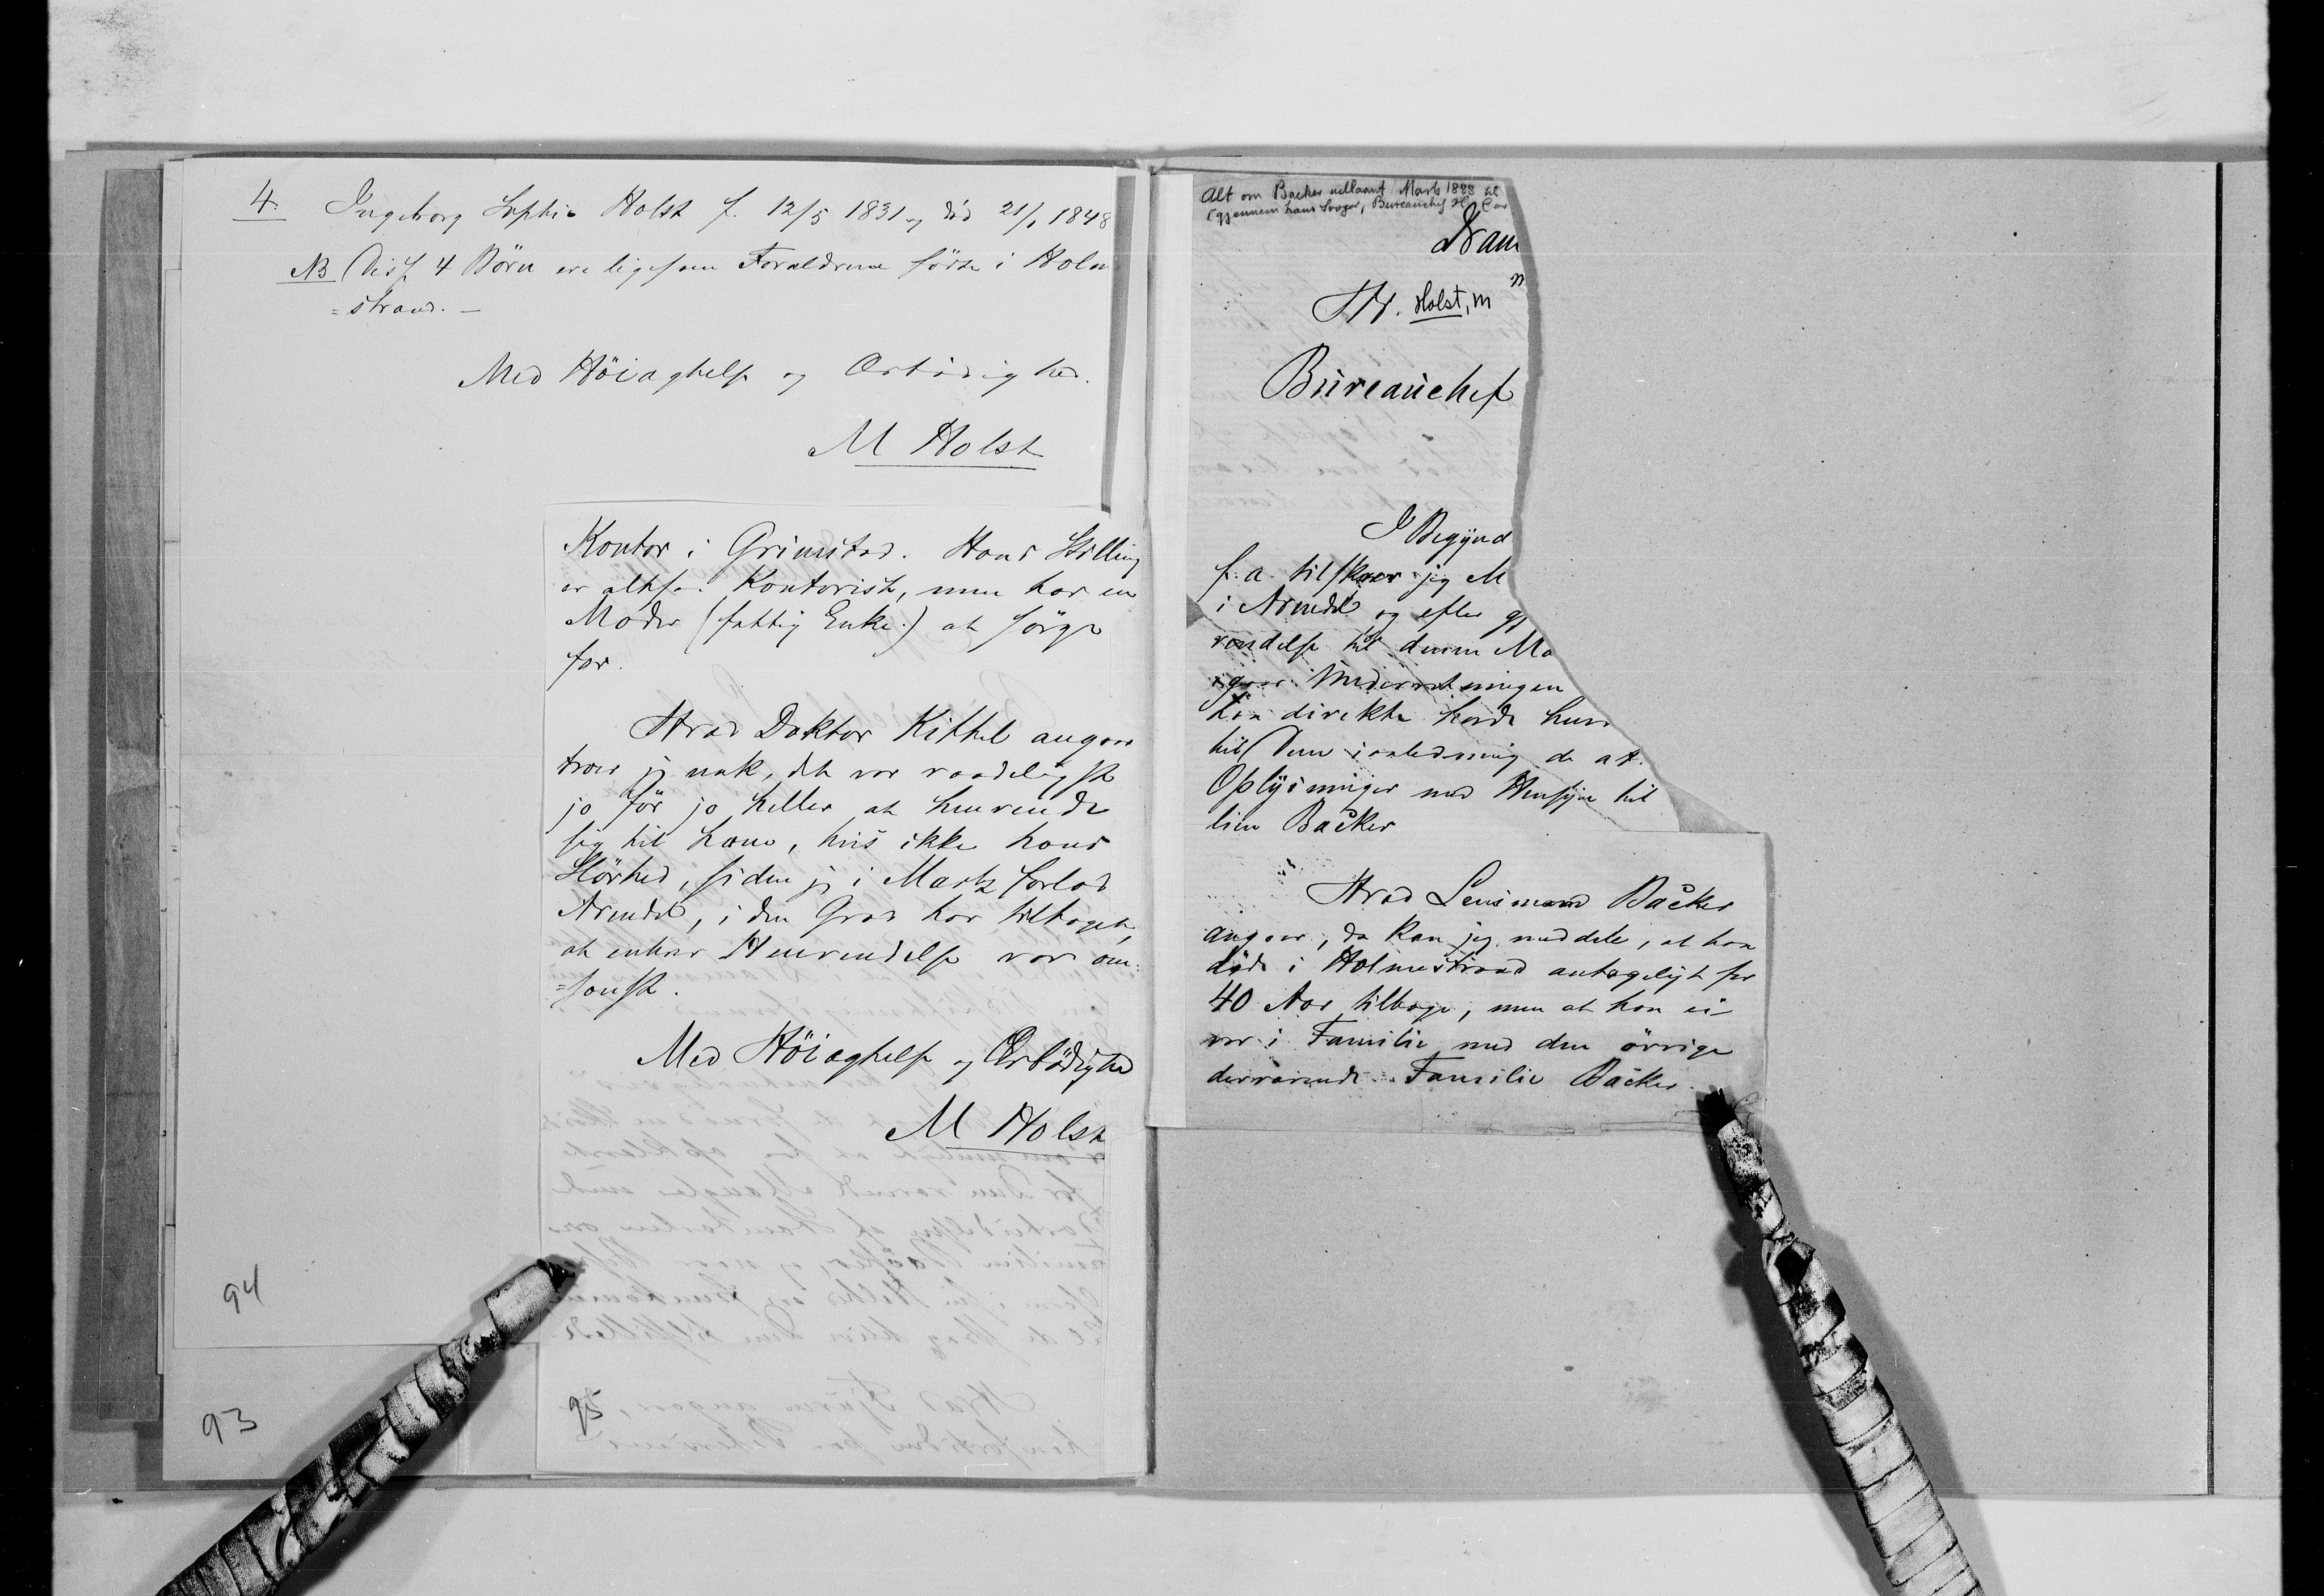 4. Ingeborg Sophie Holst f. 12/5 1831 og död 21/1 1848
NB Disse 4 Börn ere ligesom Forældrene födte i Holm
=strand. —
Med Höiagtelse og Ærbödighed.
M Holst
Kontor i Grimstad. Hans Stilling
er altsaa Kontorist, men har en
Moder (fattig Enke) at sörge
for.
Hvad Doktor Kittel angaar
troer jeg nok, det var raadeligst
jo för jo heller at henvende
sig til ham, hvis ikke hans
Slövhed, siden jeg i Marts forlod
Arendal, i den Grad har tiltaget,
at enhver Henvendelse var om=
=sonst.
Med Höiagtelse og Ærbödighed
M Holst
94
93
95
Alt om Backer udlaant Marts 1888 til
(gjennem hans Svoger, Bureauchef H. Car
Dram
Hr. Holst, m
Bureauchef
I Begynd
f. a. tilskrev jeg M
i Arendal og efter gj
vendelse til denne Ma
han direkte havde henv
til Dem i anledning de af
Oplysninger med Hensyn til
lien Backer
Hvad Lensmand Backer
angaar, da kan jeg meddele, at han
döde i Holmestrand antageligt for
40 Aar tilbage, men at han ei
var i Familie med den övrige
derværende Familie Backer.